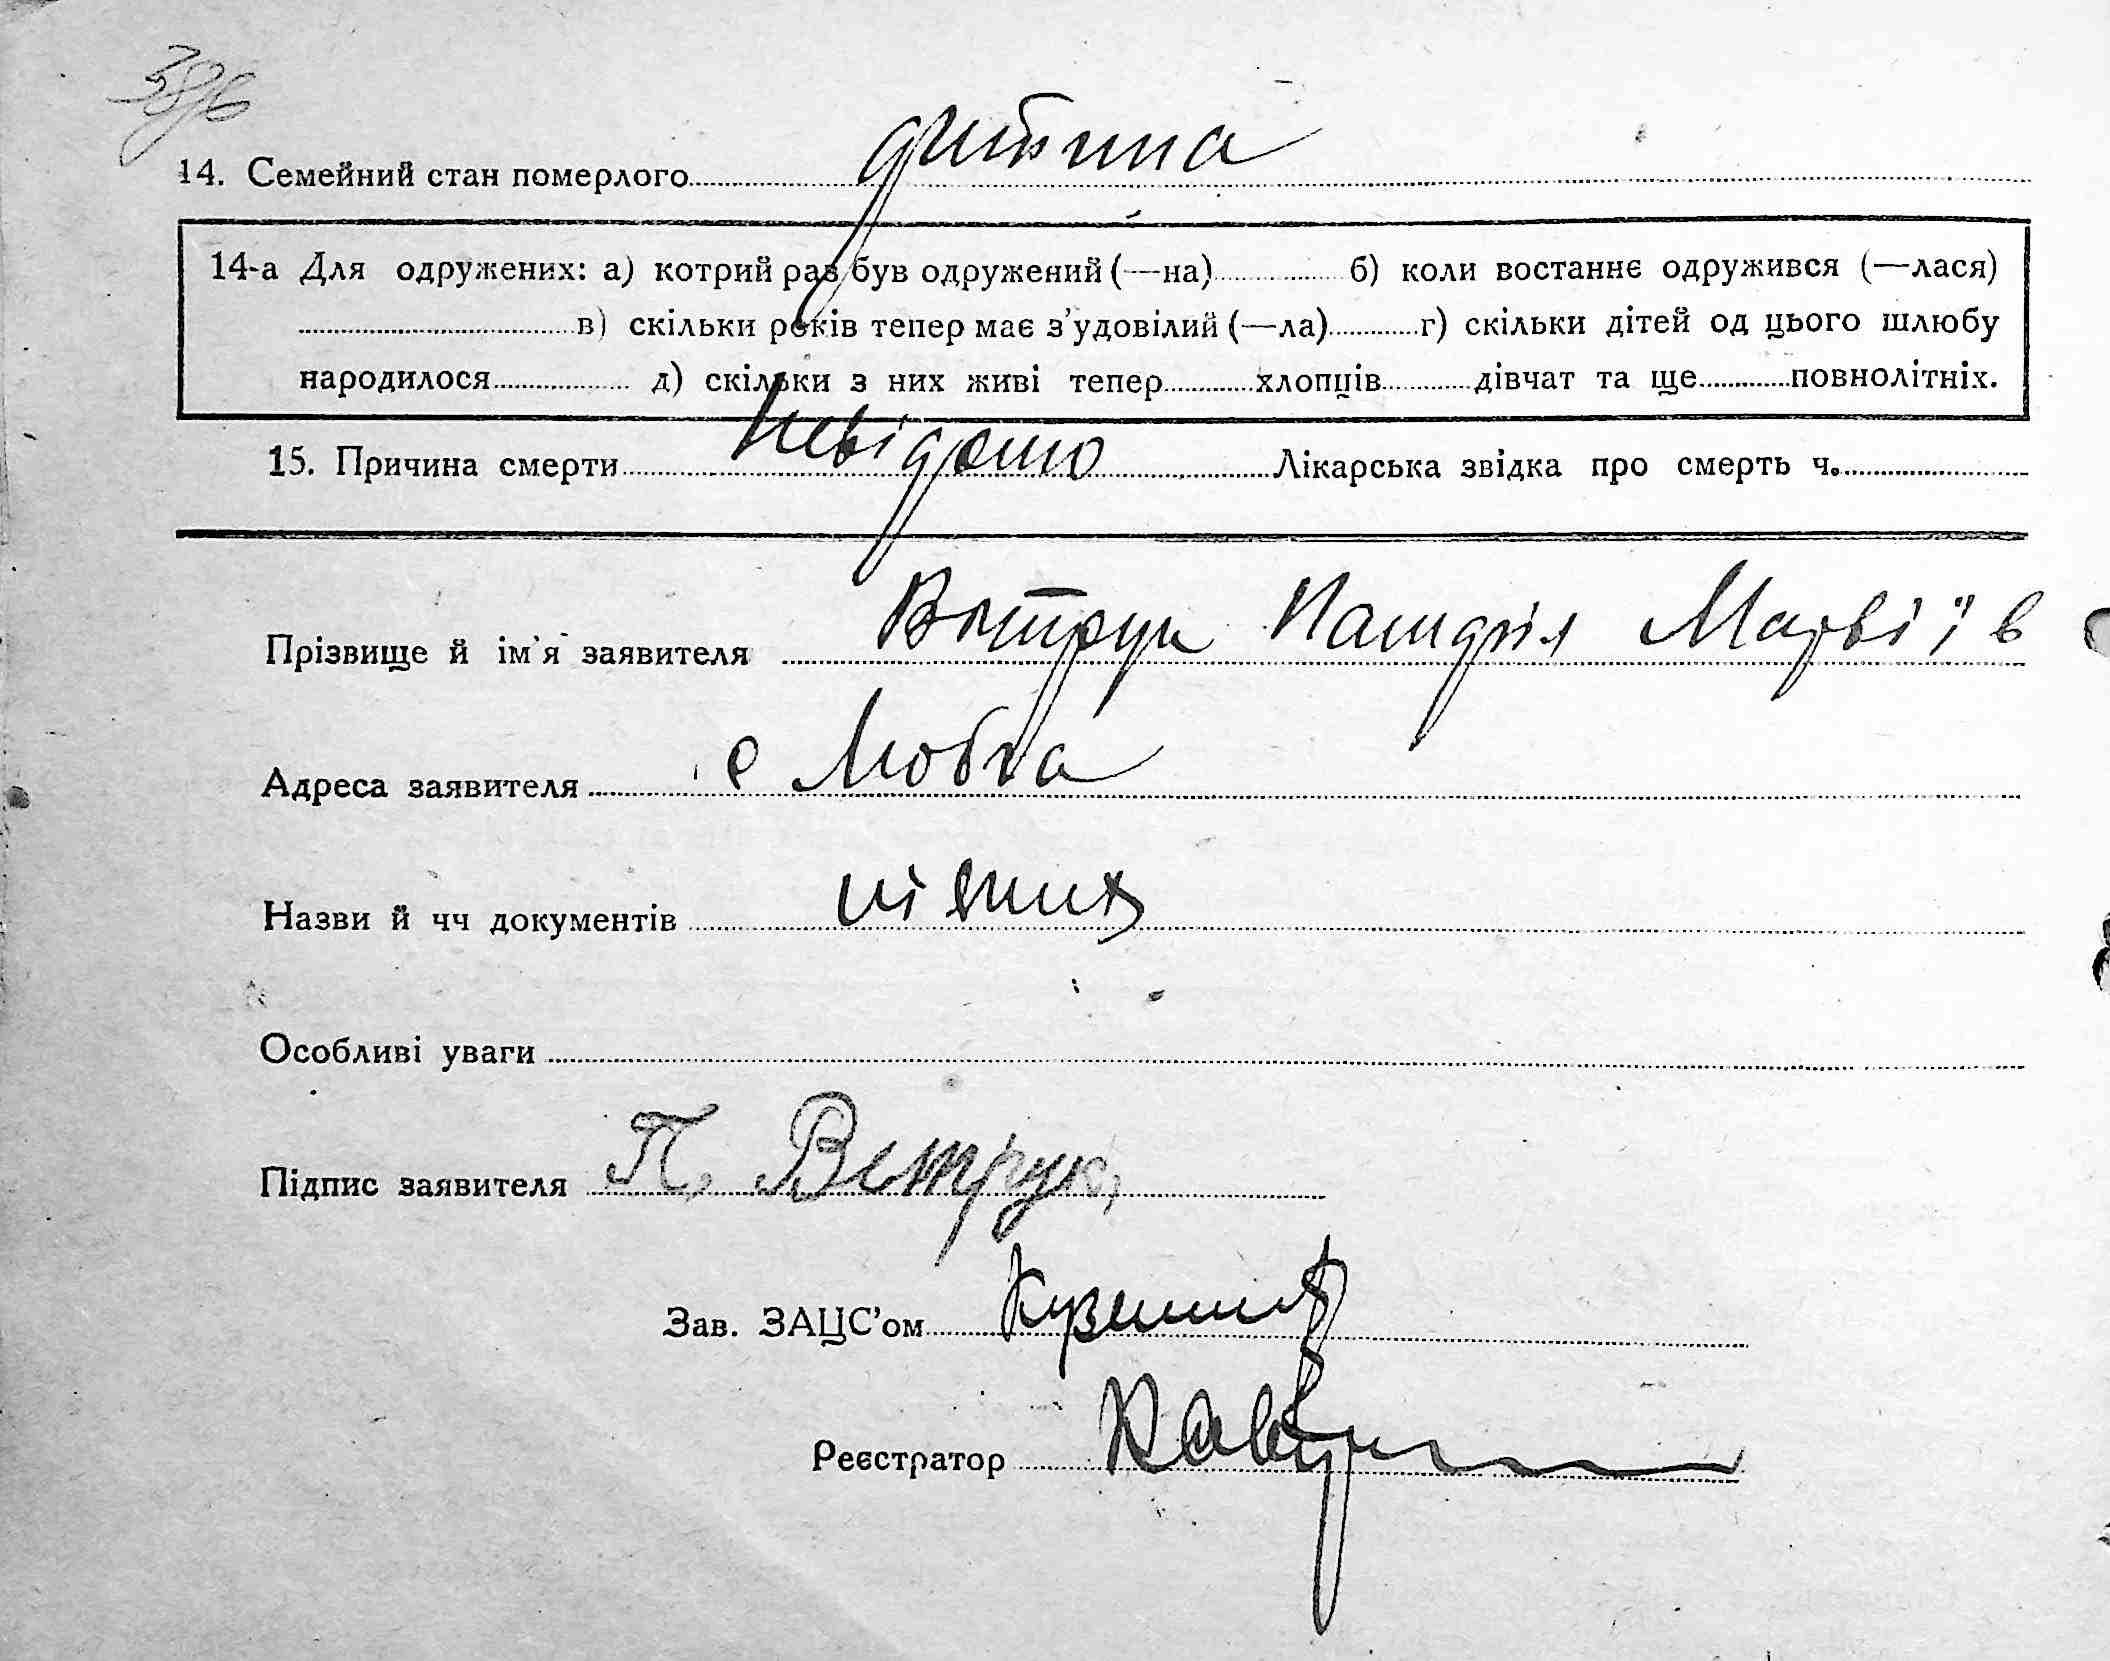 14. Семейний стан померлого дитина
14-а Для одружених: а) котрий раз був одружений (—на) б) коли востаннє одружився (—лася)
в) скільки років тепер має з’удовілий (—ла) г) скільки дітей од цього шлюбу
народилося д) скільки з них живі тепер хлопців дівчат та ще повнолітніх.
15. Причина смерти невідомо Лікарська звідка про смерть ч.
Прізвище й ім'я заявителя Вітрук Матвіїв
Адреса заявителя с
Назви й чч документів ніяких
Особливі уваги
Підпис заявителя П. Вітрук
Зав. ЗАЦС’ом
Реєстратор